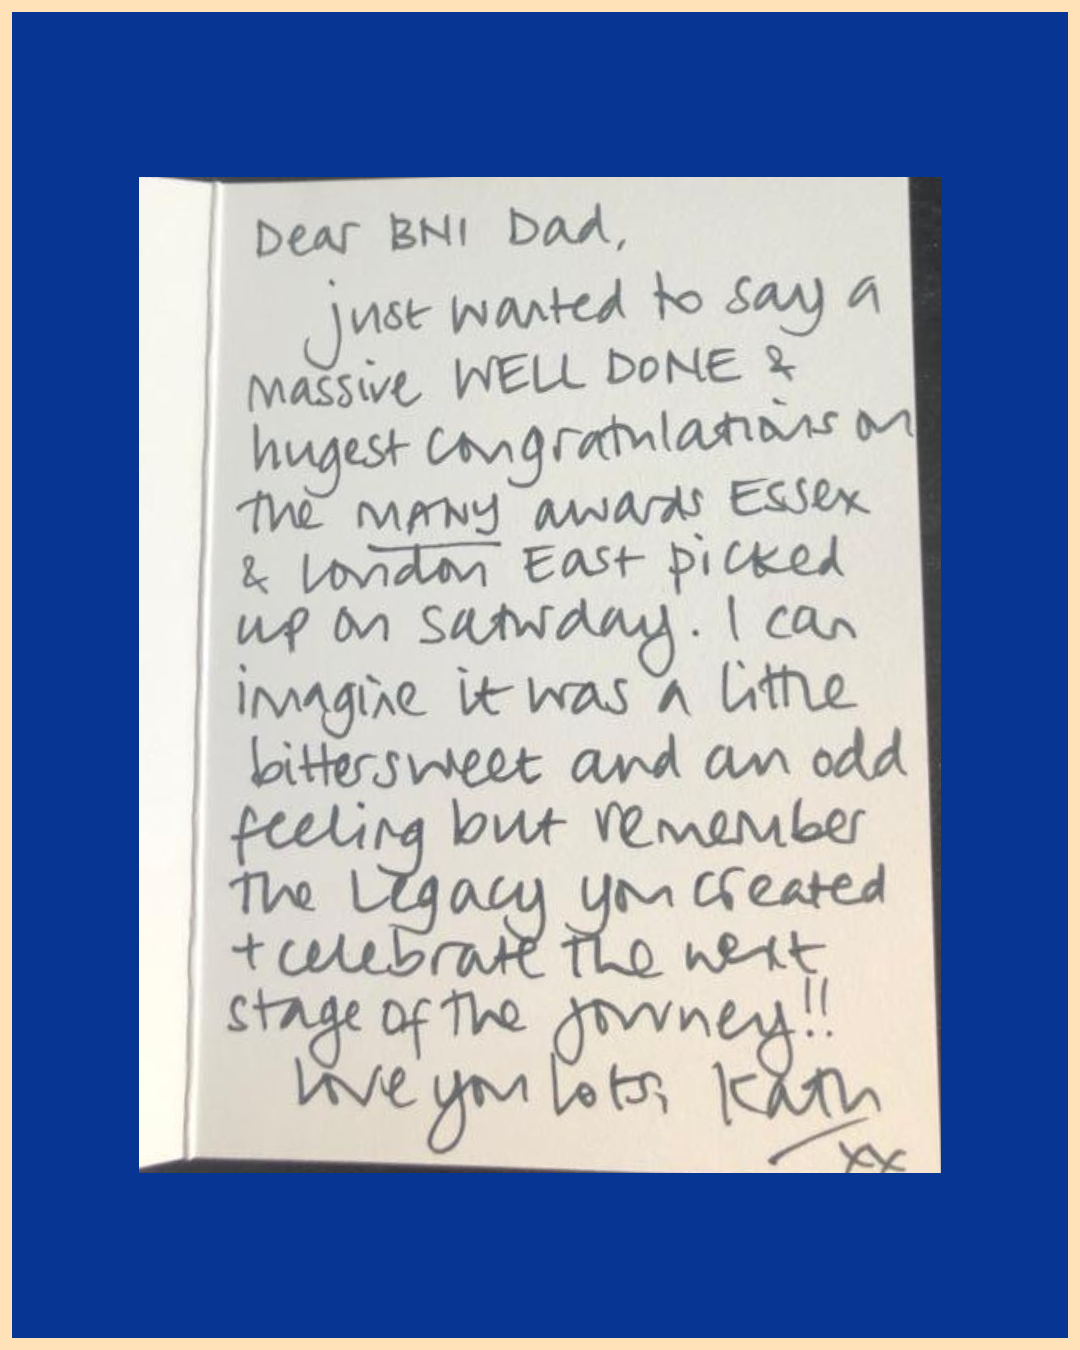 Dear BNI Dad,
just wanted to say a
massive WELL DONE &
hugest congratulations on
the MANY awards Essex
& London East picked
up on Saturday. I can
imagine it was a little
bittersweet and an odd
feeling but remember
the Legacy you created
+ celebrate the next
stage of the journey!!
Love you lots, Kath
xx